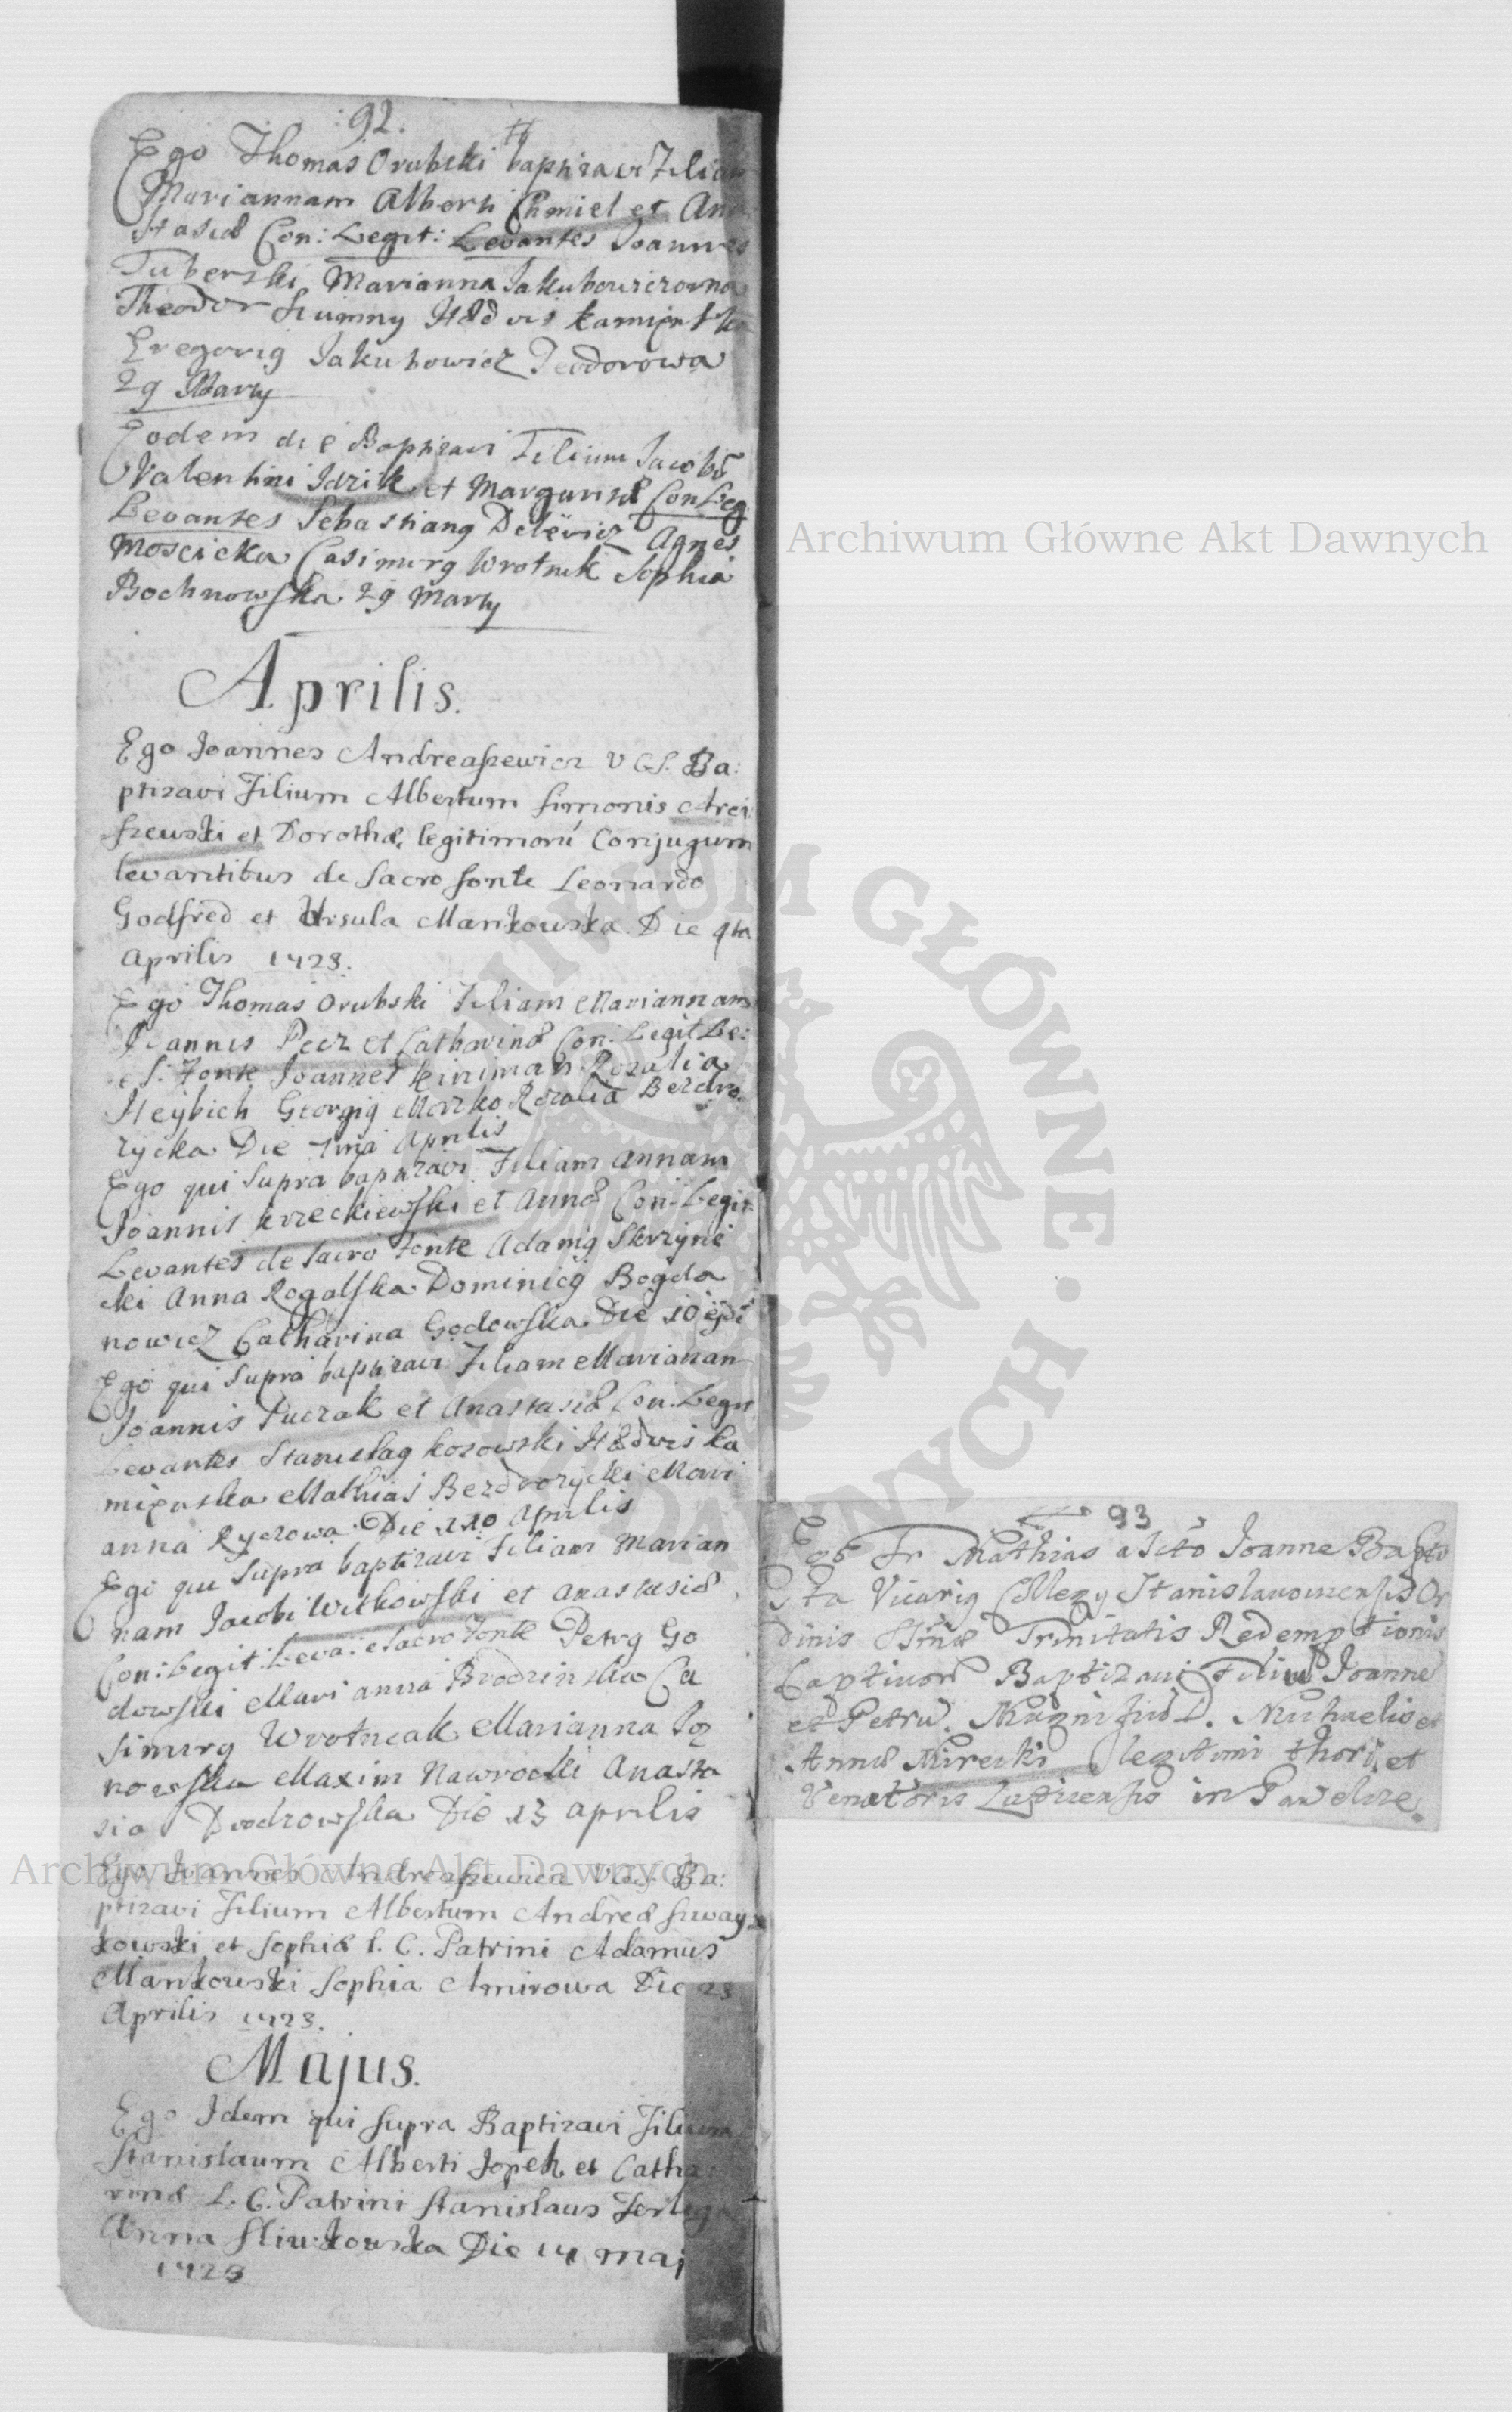 :92.
Ego Thomas Orubski baptizavi Filiam
Mariannam Alberti Chmiel et Ana
stasiæ Con: Legit: Levantes Joannes
Tuberski Marianna Jakubowiczowna
Theodor Szumny Hædvis Kamięnska
Gregorig Jakubowicz Teodorowa
29 Marty
Eodem die Baptizavi Filium Jacobū
Valentini Idzik et Margaritæ Con Leg
Levantes Sebastiang Agnes
Moscicka Casimirg Wrotnik Sophia
Bochnowska 29 Marty
Aprilis.
Ego Joannes Andreaszewicz V C S. Ba:
ptizavi Filium Albertum Simonis Arci
szewski et Dorothæ legitimorū Conjugum
levantibus de Sacro fonte Leonardo
Godfred et Ursula Mankowska Die 4ta
Aprilis 1723.
Ego Thomas Orubski Filiam Mariannam
Joannis Pecz et Catharinæ Con: Legit Le:
e S: Fonte Joannes Kiniman Rozalia
Heybich Georgig Morzko Rozalia Bezdro
rycka Die Aprilis
Ego qui Supra baptizavi Filiam Annam
Joannis Krzeckiewski et Annæ Con: Legit:
Levantes de Sacro Fonte Adamg Skrzyne
cki Anna Rogalska Dominicg Bogda
nowicz Catharina Godowska Die 10
Ego qui Supra baptizavi Filiam Mariannam
Joannis Puczak et Anastasiæ Con: Legit
Levantes Stanislag Kosowski Hædvis Ka
mięnska Mathias Bezdrozycki Mari
anna Ryczowa Die Aprilis
Ego qui Supra baptizavi Filiam Marian
nam Jacobi Witkowski et Anastasiæ
Con: Legit: Leva: e Sacro Fonte Petrg Go
dowski Marianna Brodzinska Ca
simirg Wrotniak Marianna
nowska Maxim Nawrocki Anasta
sia Die 13 Aprilis
Ego Joannes Andreaszewicz V C S. Ba:
ptizavi Filium Albertum Andreæ Suway
kowski et Sophiæ l. C. Patrini Adamus
Mankowski Sophia Amirowa Die 23
Aprilis 1723.
Majus.
Ego Idem qui supra Baptizavi Filium
Stanislaum Alberti Jopek et Catha
rinæ L. C. Patrini Stanislaus
Anna Sliwkowska Die 14 maj
1723
93
Ego Fr Mathias a Scto Joanne Bapti
sta Vicarig Collegy Stanislawowiensis Or
dinis SSmæ Trinitatis Redemptionis
Captivorū Baptizavi Filiū Joannē
et Petrū. Magnifici D. Michaelis et
Annæ Mirecki legitimi thori, et
Venatoris in Pawelcze
Archiwum Główne Akt Dawnych
Archiwum Główne Akt Dawnych
ARCHIWUM GŁÓWNE • AKT DAWNYCH •